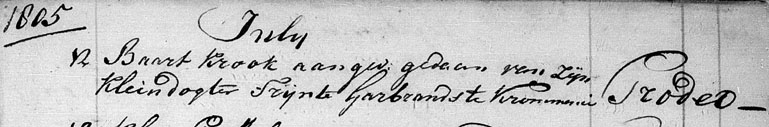 1805
July
12 Baart Krook aangev: gedaan van zijn
Kleindogter Trijntie Garbrands te Krommenie Prodeo —